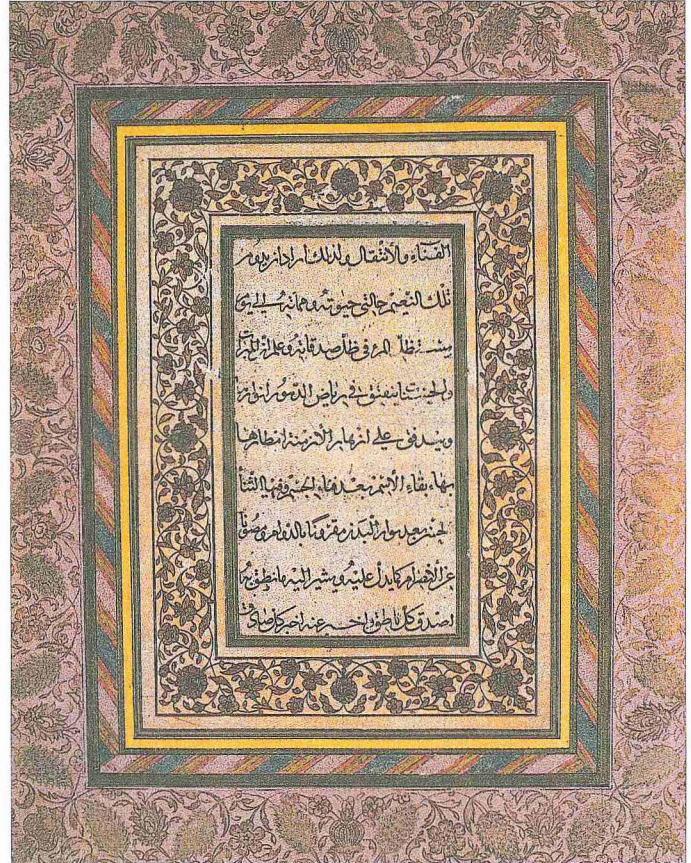 الفناء والانتقال ولذلك اراد ان يدوم
تلك النعم حالتي حيوته ومماته
يستظل المرء في ظل صدقاته وعلم ان
في رياض الدهور انوارها
ويتدفق على انهار الازمنة امطارها
بهاء بقاء الاسم بعد فناء الجسم وفيها الثناء
بعد بوار البدن مقرونا بالدوام ومصونا
عن الانصرام كما يدل عليه ويشير اليه ما نطق به
اصدق كل ناطق واخبر عنه اخبر كل صادق